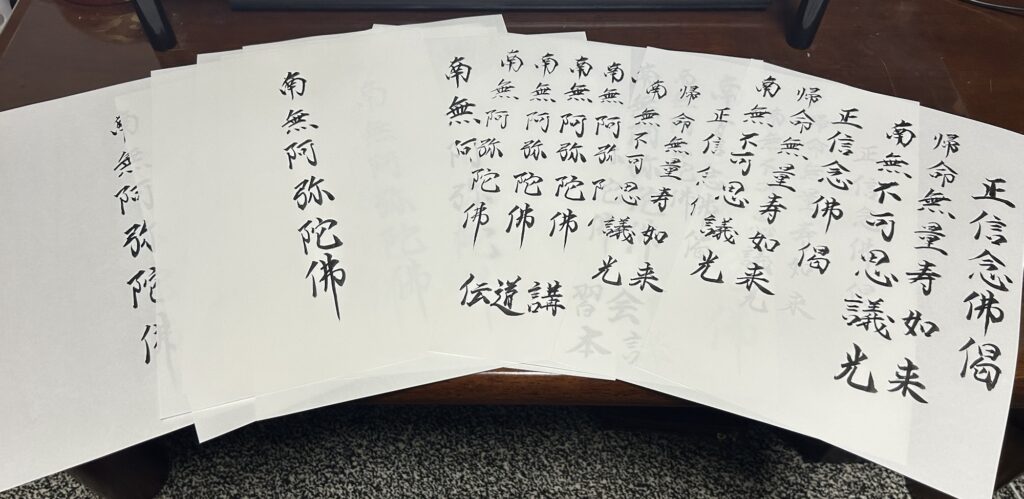 正信念佛偈
帰命無量寿如来
南無不可思議光
正信念佛偈
帰命無量寿如来
南無不可思議光
正信念佛偈
帰命無量寿如来
南無不可思議光
南無阿弥陀佛
南無阿弥陀佛
南無阿弥陀佛
南無阿弥陀佛
南無阿弥陀佛
伝道講
習会
本
南無阿弥陀佛
南無阿弥陀